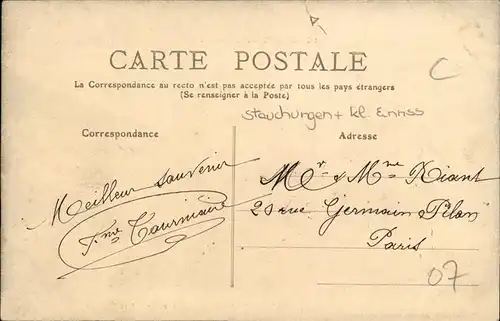 CARTE POSTALE
La Correspondance au recto n'est pas acceptée par tous les pays étrangers
(Se renseigner à la Poste)
C
Stauchungen + kl. Einriss
Correspondance
Adresse
Meilleur souvenir
Mr & Mme Riant
20 rue Germain Pilon
Paris
07